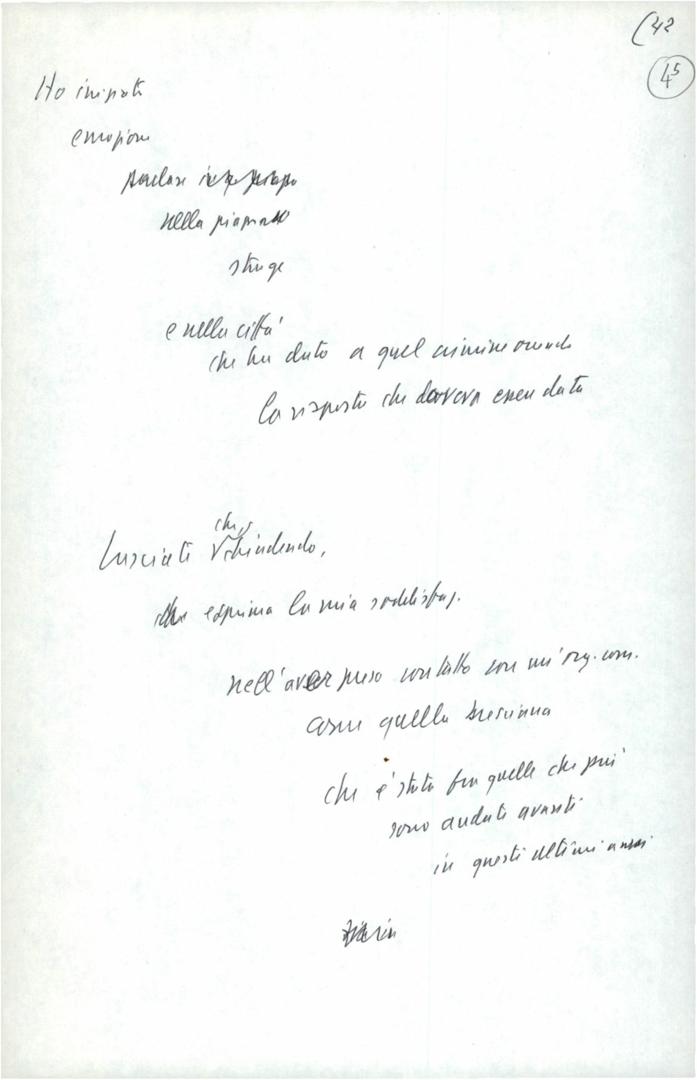 (42
45
Ho
emozione
parlare
nella
strage
e nella città
che ha dato a quel crimine orrendo
la risposta che doveva esser data
Lasciate che, chiudendo,
esprima la mia soddisfaz.
nell'aver preso contatto con un'org. com.
come quella bresciana
che è stata fra quelle che più
sono andate avanti
in questi ultimi anni